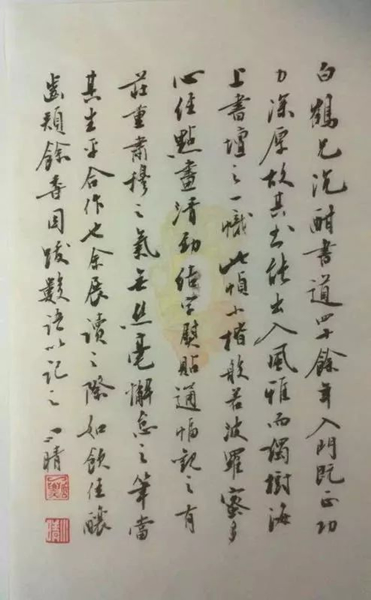 白鶴兄沉酣書道四十餘年入門既正功
力深厚故其書能出入風雅而獨樹海
上書壇之一幟此幀小楷般若波羅蜜多
心經點畫清勁結字熨貼通幅觀之有
莊重肅穆之氣無絲毫懈怠之筆當
其生平合作也余展讀之際如飲佳釀
齒頰餘香因跋數語以記之 一晴